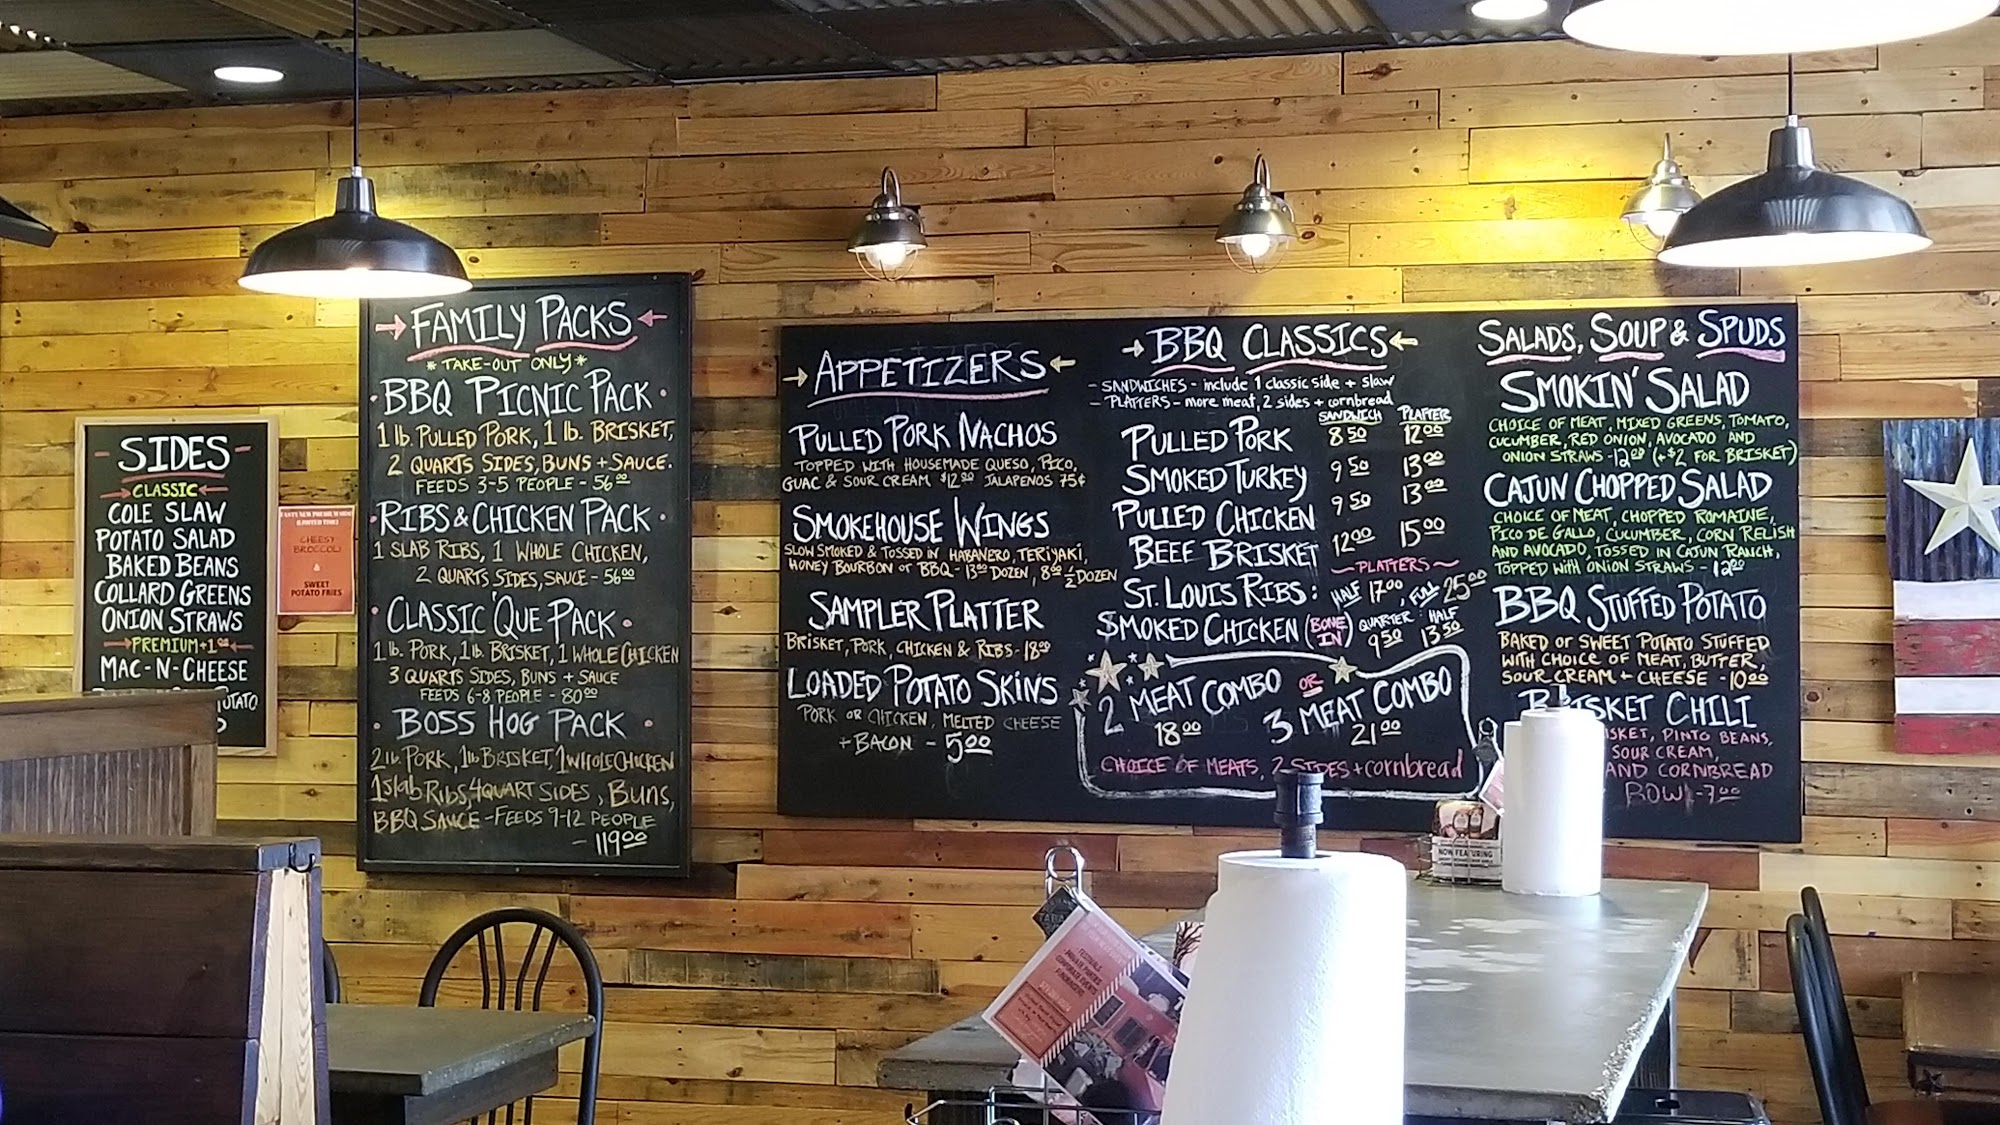 SIDES
CLASSIC
COLE SLAW
POTATO SALAD
BAKED BEANS
COLLARD GREENS
ONION STRAWS
PREMIUM +1.00
MAC-N-CHEESE
TASTY NEW PREMIUM SIDES
(LIMITED TIME)
CHEESY
BROCCOLI
&
SWEET
POTATO FRIES
FAMILY PACKS
* TAKE-OUT ONLY *
BBQ PICNIC PACK
1 lb. PULLED PORK, 1 lb. BRISKET,
2 QUARTS SIDES, BUNS + SAUCE.
FEEDS 3-5 PEOPLE - 56.00
RIBS & CHICKEN PACK
1 SLAB RIBS, 1 WHOLE CHICKEN,
2 QUARTS SIDES, SAUCE - 56.00
CLASSIC 'QUE PACK
1 lb. PORK, 1 lb. BRISKET, 1 WHOLE CHICKEN
3 QUARTS SIDES, BUNS + SAUCE
FEEDS 6-8 PEOPLE - 80.00
BOSS HOG PACK
2 lb. PORK, 1 lb BRISKET, 1 WHOLE CHICKEN
1 slab RIBS, 4 QUART SIDES, BUNS,
BBQ SAUCE - FEEDS 9-12 PEOPLE
- 119.00
APPETIZERS
PULLED PORK NACHOS
TOPPED WITH HOUSEMADE QUESO, PICO,
GUAC & SOUR CREAM $12.00 JALAPENOS 75¢
SMOKEHOUSE WINGS
SLOW SMOKED & TOSSED IN HABANERO, TERIYAKI,
HONEY BOURBON or BBQ - 13.00 DOZEN, 8.00 1/2 DOZEN
SAMPLER PLATTER
BRISKET, PORK, CHICKEN & RIBS - 18.00
LOADED POTATO SKINS
PORK OR CHICKEN, MELTED CHEESE
+ BACON - 5.00
BBQ CLASSICS
- SANDWICHES - include 1 classic side + slaw
- PLATTERS - more meat, 2 sides + cornbread
SANDWICH PLATTER
PULLED PORK 8.50 12.00
SMOKED TURKEY 9.50 13.00
PULLED CHICKEN 9.50 13.00
BEEF BRISKET 12.00 15.00
~ PLATTERS ~
ST. LOUIS RIBS: HALF 17.00, FULL 25.00
SMOKED CHICKEN (BONE IN) QUARTER 9.50 : HALF 13.50
2 MEAT COMBO OR 3 MEAT COMBO
18.00 21.00
CHOICE OF MEATS, 2 SIDES + cornbread
SALADS, SOUP & SPUDS
SMOKIN' SALAD
CHOICE OF MEAT, MIXED GREENS, TOMATO,
CUCUMBER, RED ONION, AVOCADO AND
ONION STRAWS - 12.00 (+$2 FOR BRISKET)
CAJUN CHOPPED SALAD
CHOICE OF MEAT, CHOPPED ROMAINE,
PICO DE GALLO, CUCUMBER, CORN RELISH
AND AVOCADO, TOSSED IN CAJUN RANCH,
TOPPED WITH ONION STRAWS - 12.00
BBQ STUFFED POTATO
BAKED or SWEET POTATO STUFFED
WITH CHOICE OF MEAT, BUTTER,
SOUR CREAM + CHEESE - 10.00
BRISKET CHILI
PINTO BEANS,
SOUR CREAM,
AND CORNBREAD
BOWL - 7.00
NOW FEATURING
FESTIVALS
PRIVATE PARTIES
CORPORATE EVENTS
FUNDRAISERS